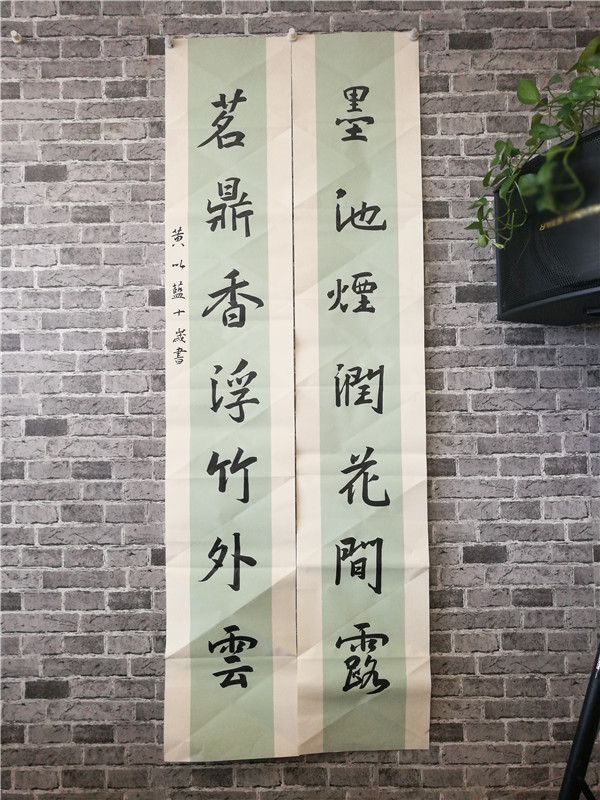 墨池煙潤花間露
茗鼎香浮竹外雲
黄以藍十歲書